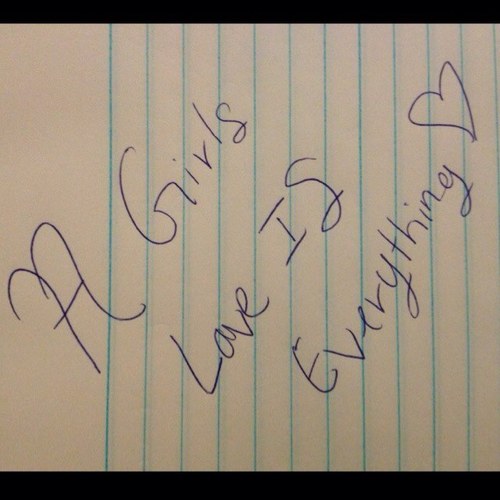 A Girls
Love Is
Everything